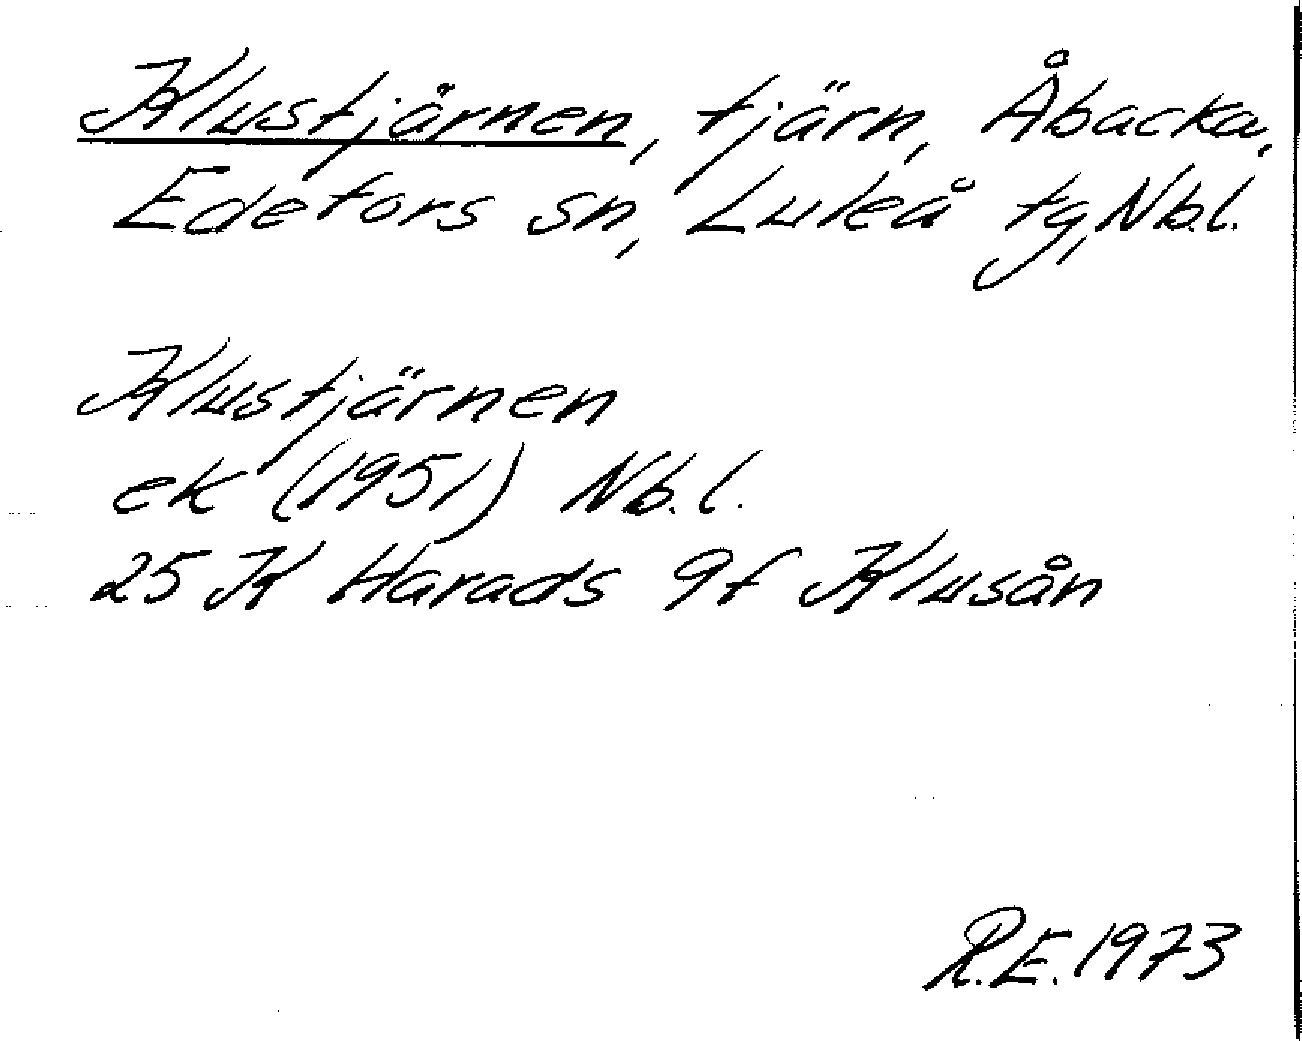 Klustjärnen, tjärn, Åbacka,
Edefors sn, Luleå tg, Nb.l.
Klustjärnen
ek (1951) Nb.l.
25 K Harads 9f Klusån
R.E. 1973